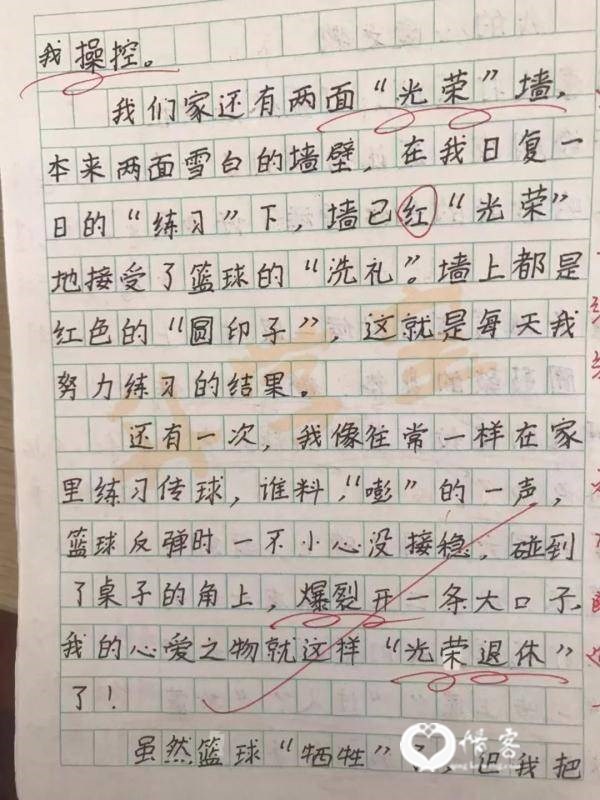 我操控。
我们家还有两面“光荣”墙，
本来两面雪白的墙壁，在我日复一
日的“练习”下，墙已红“光荣”
地接受了篮球的“洗礼”。墙上都是
红色的“圆印子”，这就是每天我
努力练习的结果。
还有一次，我像往常一样在家
里练习传球，谁料，“嘭”的一声，
篮球反弹时一不小心没接稳，碰到
了桌子的角上，爆裂开一条大口子，
我的心爱之物就这样“光荣退休”
了！
虽然篮球“牺牲”了，但我把
情客